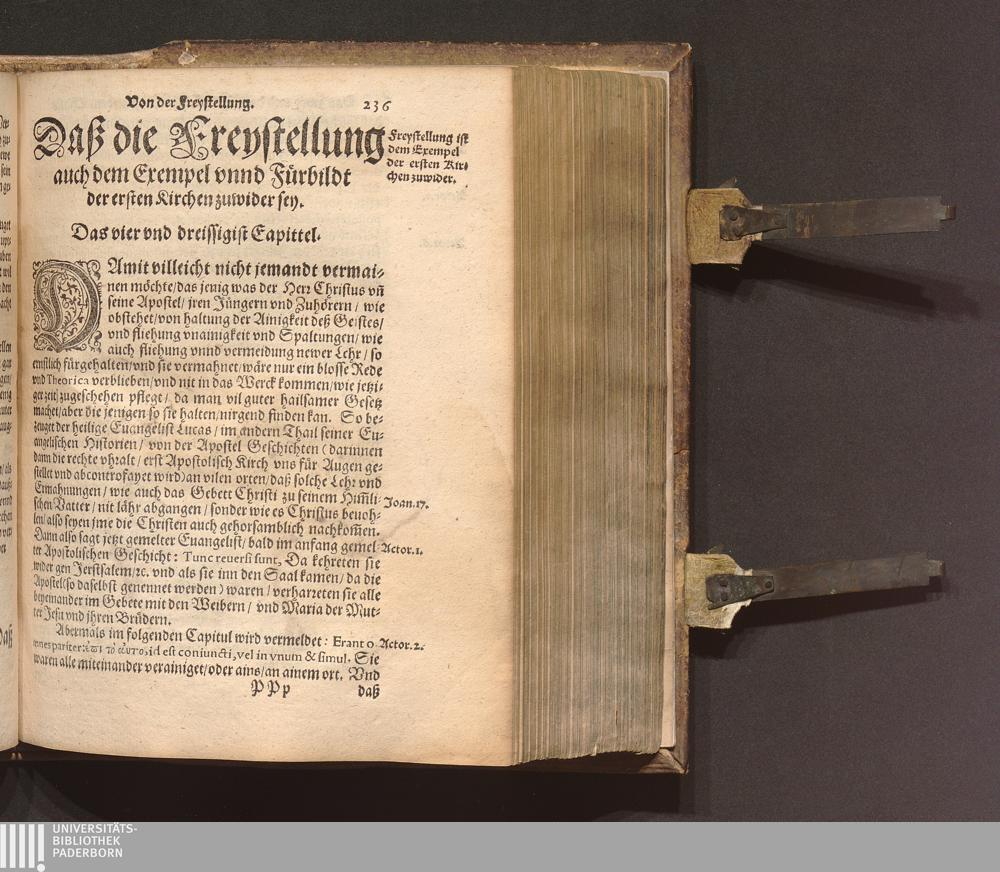 Von der Freystellung. 236
Daß die Freystellung
auch dem Exempel vnnd Fürbildt
der ersten Kirchen zuwider sey.
Freystellung ist
dem Exempel
der ersten Kir-
chen zuwider.
Das vier vnd dreissigist Capittel.
DAmit villeicht nicht jemandt vermai-
nen möchte/das jenig was der Herr Christus vn̄
seine Apostel/ jren Jüngern vnd Zuhörern/ wie
obstehet/von haltung der Ainigkeit deß Geistes/
vnd fliehung vnainigkeit vnd Spaltungen/ wie
auch fliehung vnnd vermeidung newer Lehr/ so
ernstlich fürgehalten/vnd sie vermahnet/wäre nur ein blosse Rede
vnd Theorica verblieben/vnd nit in das Werck kommen/wie jetzi-
ger zeit zugeschehen pflegt/ da man vil guter hailsamer Gesetz
machet/aber die jenigen so sie halten/nirgend finden kan. So be-
zeuget der heilige Euangelist Lucas/ im andern Thail seiner Eu-
angelischen Historien/ von der Apostel Geschichten (darinnen
dann die rechte vhralt/ erst Apostolisch Kirch vns für Augen ge-
stellet vnd abcontrofayet wird) an vilen orten/daß solche Lehr vnd
Ermahnungen/ wie auch das Gebett Christi zu seinem Him̄li-
schen Vatter/ nit lähr abgangen/ sonder wie es Christus beuoh-
len/ also seyen jme die Christen auch gehorsamblich nachkom̄en.
Dann also sagt jetzt gemelter Euangelist/ bald im anfang gemel-
ter Apostolischen Geschicht: Tunc reuersi sunt, Da kehreten sie
wider gen Jerusalem/ꝛc. vnd als sie inn den Saal kamen/ da die
Apostel(so daselbst genennet werden) waren/ verharreten sie alle
beyeinander im Gebete mit den Weibern/ vnd Maria der Mut-
ter Jesu vnd jhren Brüdern.
Joan. 17.
Actor. 1.
Abermals im folgenden Capitul wird vermeldet: Erant o-
mnes pariter: ἐπὶ τὸ αὐτο, id est coniuncti, vel in vnum & simul. Sie
waren alle miteinander verainiget/oder ains/an ainem ort. Vnd
Actor. 2.
PPp daß
UNIVERSITÄTS-
BIBLIOTHEK
PADERBORN